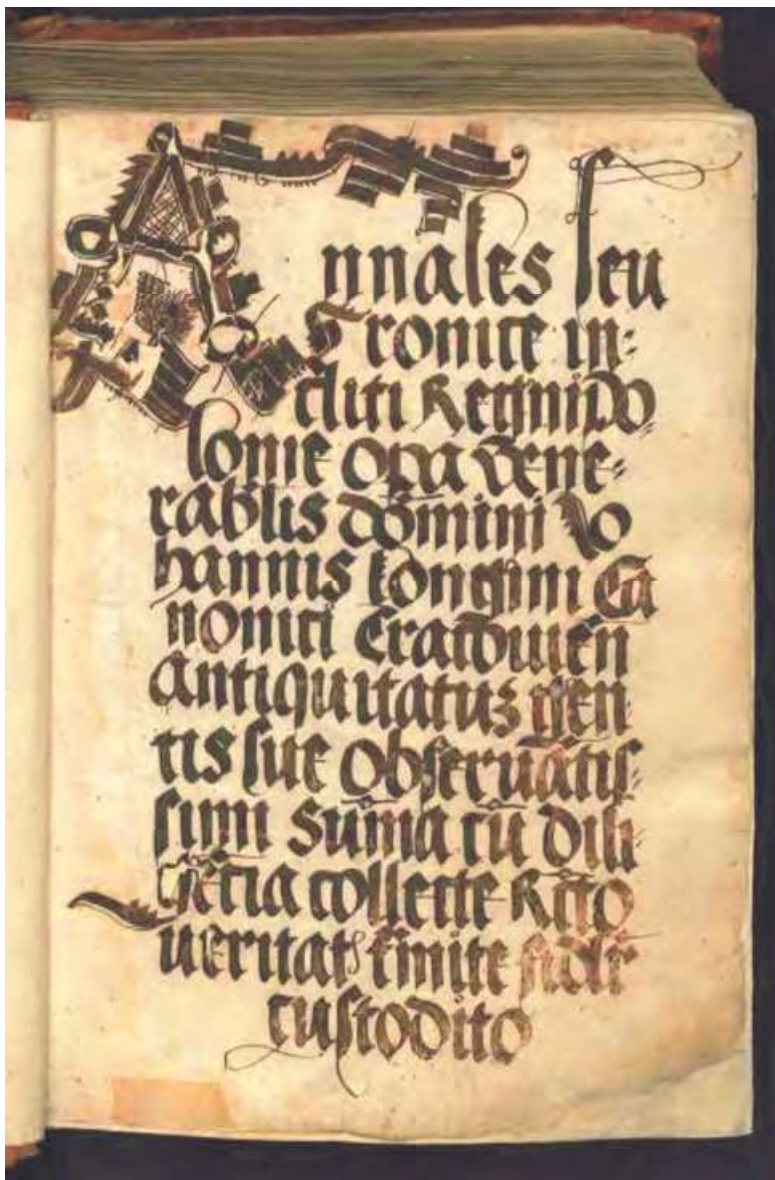 Annales seu
Cronice in-
cliti Regni Po-
lonie opa vene-
rabilis domini Io
hannis longini Ca
nonici Cracouien
antiquitatus gen
tis sue obseruatis-
simi suma cu dili
getia collecte Rcto
ueritat limite fidelr
custodito